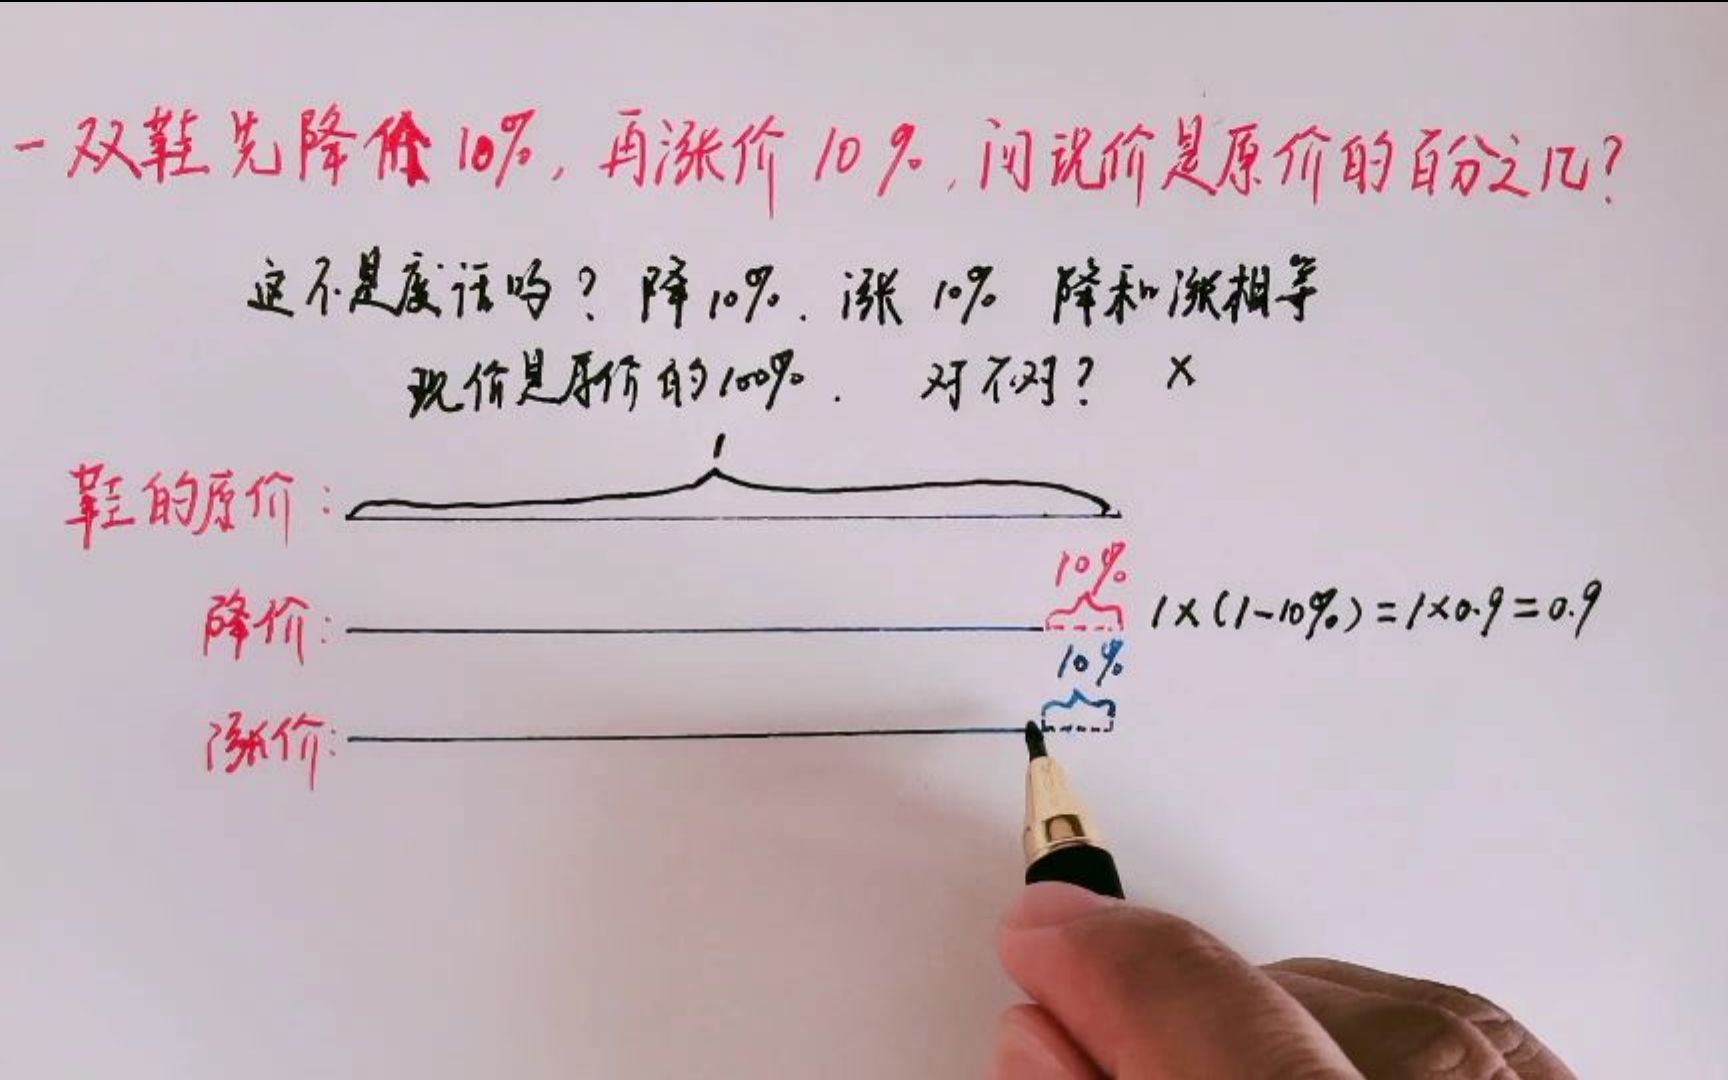 一双鞋先降价10%,再涨价10%,问现价是原价的百分之几?
这不是废话吗?降10%.涨10% 降和涨相等
现价是原价的100%. 对不对? ×
1
鞋的原价:
10%
降价: 1×(1-10%)=1×0.9=0.9
10%
涨价: